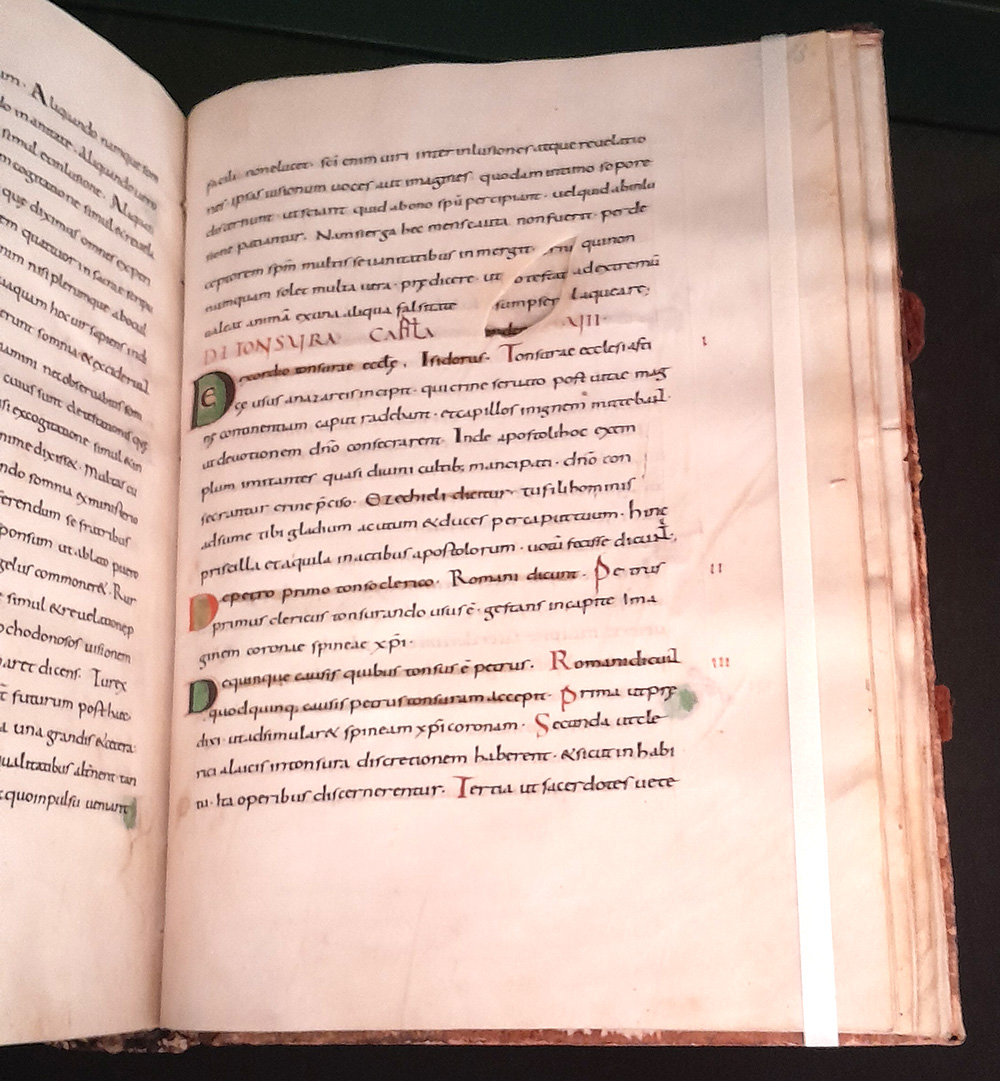 um. Aliquando namque som
simul & inlusione. Aliquan
cogitatione simul & reuela
que diximus omnes experi
em quattuor in sacrae scrip
nim nisi plerumque ab ocul
uaquam hoc uir sapiens indi
erunt somnia & exciderunt
si ex cogitatione simul & in
nime dixisset. Multas cu
ndo somnia ex ministerio
ferendum se fratribus
ponsum ut ablato puero
gelus commoner&. Rur
e simul & reuelationep
chodonosos uisionem
aret dicens. Tu rex
futurum post haec
a una grandis & cetera
qualitatibus alt̄nent tan
quo inpulsu ueniant
facile non elucet. sc̄i enim uiri inter inlusiones atque reuelatio
nes ipsas uisionum uoces aut imagines quodam intimo sapore
discernunt. ut sciant quid a bono sp̄u percipiant. uel quid ab inlu
sione patiantur. Nam si erga hec mens cauta non fuerit. per de
ceptorem sp̄m multis se uanitatibus inmergit qui non
numquam solet multa uera prędicere. ut ad extremū
ualeat animā ex una aliqua falsitate laqueare;
DE TONSURA CAPĪTA VII.
De exordio tonsurae eccl̄e. Isidorus. Tonsurae ecclesiasti i
cę usus a nazareis incipit. qui crine seruato post uitae mag
ne continentiam caput radebant. et capillos in ignem mittebant.
ut deuotionem dn̄o consecrarent. Inde apostoli hoc exem
plum imitantes quasi diuini cultib; mancipati. dn̄o con
secrantur crine p̄ciso. Ezechieli dicitur tu fili hominis
adsume tibi gladium acutum & duces per caput tuum. hinc
priscilla et aquila in actibus apostolorum. uotū fecisse dicunt.
De petro primo tonso clerico. Romani dicunt. Petrus ii
primus clericus tonsurando usus ē. gestans in capite Ima
ginem coronae spineae xp̄i.
De quinque causis quibus tonsus ē petrus. Romani dicunt iii
quod quinq; causis petrus tonsuram accepit. Prima ut prę
dixi. ut adsimular& spineam xp̄i coronam. Secunda ut cle
rici a laicis in tonsura discretionem haberent. & sicut in habi
tu. Ita operibus discernerentur. Tertia ut sacerdotes uete